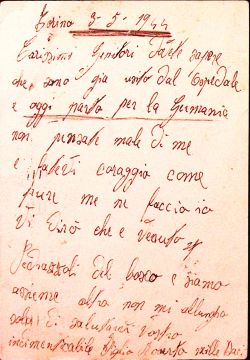 Torino 3-5-1944
Carissimi Genitori fatte sapere
che sono gia usito dal Ospedale
e oggi parto per la Germania
non pensate male di me
e fatevi coraggio come
pure me ne faccio io
Vi dirò che e venuto
Pedrazzoli del bosco e siamo
assieme altro non mi allungho
solo di salutarvi vostro
indimenticabile figlio mille